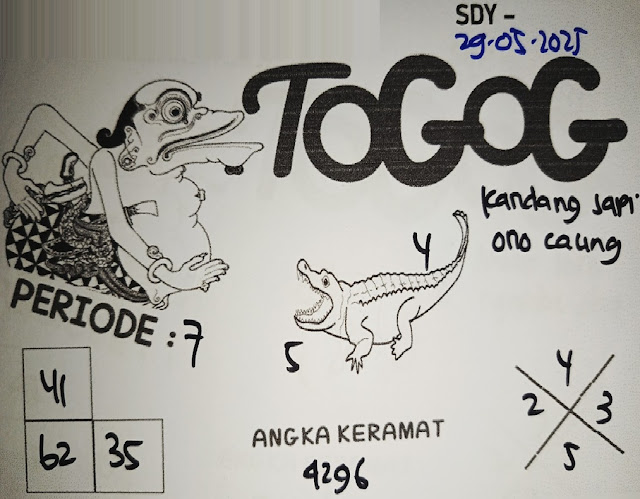 SDY -
29-05-2025
TOGOG
Kandang sapi
ono caung
PERIODE : 7
4
5
41
62 35
ANGKA KERAMAT
4296
4
2 3
5